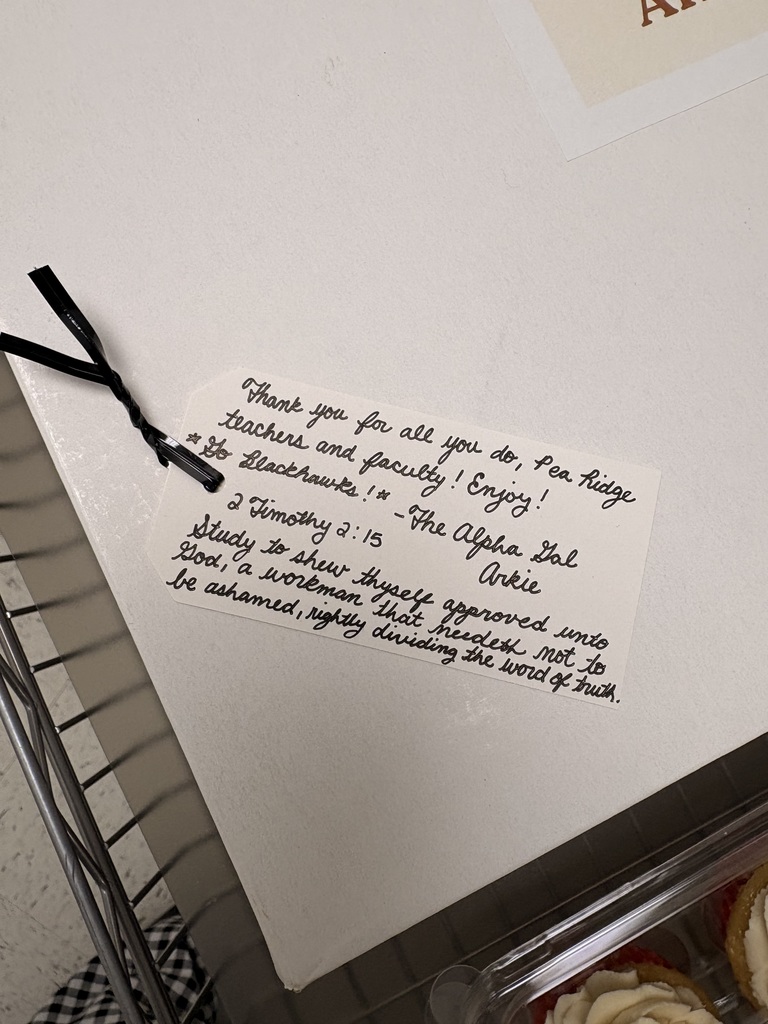 Thank you for all you do, Pea Ridge
teachers and faculty! Enjoy!
*Go Blackhawks!* -The Alpha Gal
Arkie
2 Timothy 2:15
Study to shew thyself approved unto
God, a workman that needeth not to
be ashamed, rightly dividing the word of truth.